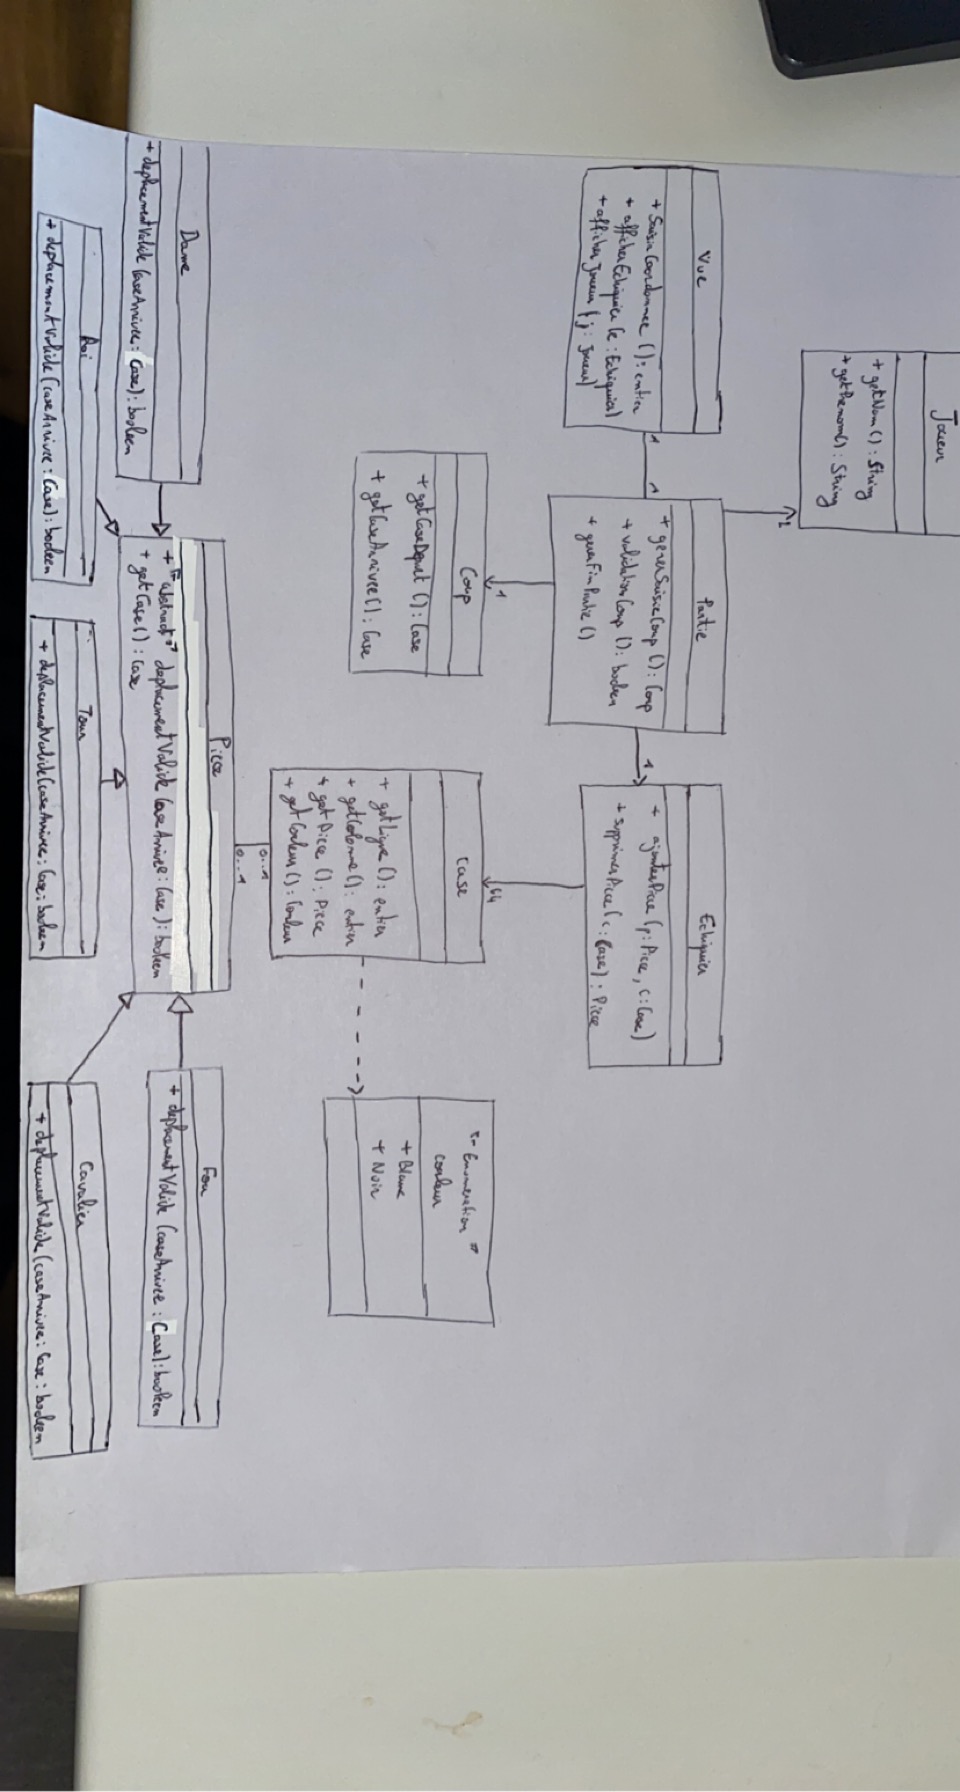 Joueur
+ getNom () : String
+ getPrenom() : String
Vue
+ SaisirCoordonnee () : entier
+ afficherEchiquier (e : Echiquier)
+ afficherJoueur (j : Joueur)
1
1
2
Partie
+ gererSaisieCoup () : Coup
+ validationCoup () : booleen
+ gererFinPartie ()
1
Echiquier
+ ajouterPiece (p : Piece, c : Case)
+ supprimerPiece (c : Case) : Piece
1
Coup
+ getCaseDepart () : Case
+ getCaseArrivee () : Case
64
Case
+ getLigne () : entier
+ getColonne () : entier
+ getPiece () : Piece
+ getCouleur () : Couleur
"Enumeration"
couleur
+ Blanc
+ Noir
0..1
0..1
Piece
+ "abstract" deplacementValide (caseArrivee : Case) : booleen
+ getCase () : Case
Dame
+ deplacementValide (caseArrivee : Case) : booleen
Roi
+ deplacementValide (caseArrivee : Case) : booleen
Tour
+ deplacementValide (caseArrivee : Case : booleen
Fou
+ deplacementValide (caseArrivee : Case) : booleen
Cavalier
+ deplacementValide (caseArrivee : Case : booleen